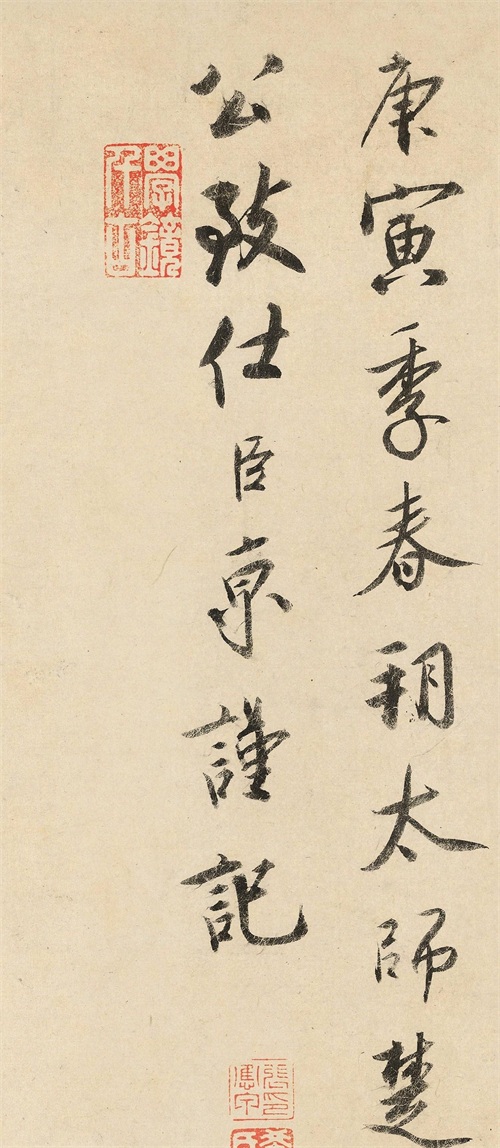 庚寅季春朔太師楚
公致仕臣京謹記